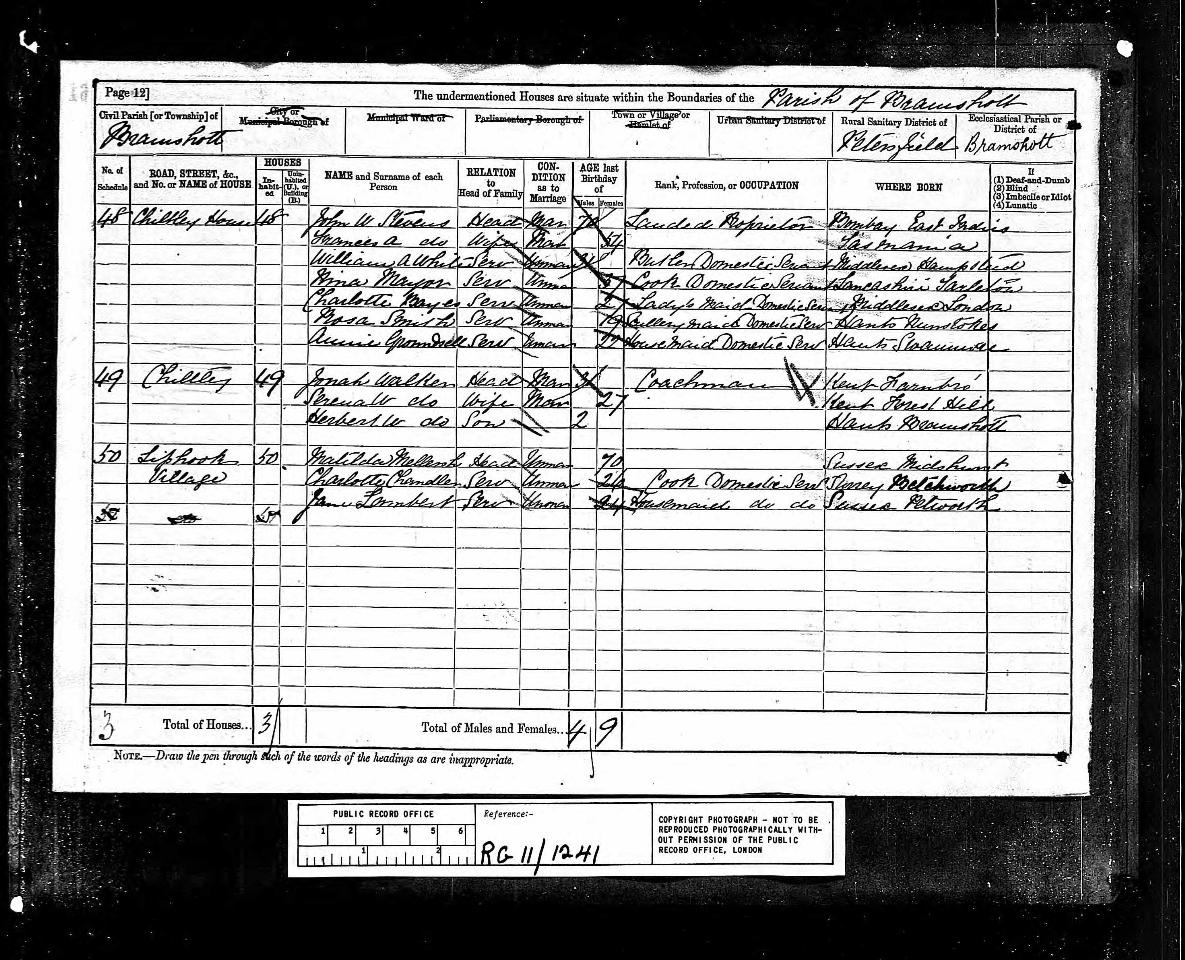 Page 12]
The undermentioned Houses are situate within the Boundaries of the Parish of Bramshott
Civil Parish [or Township] of
Bramshott
City or
Municipal Borough of
Municipal Ward of
Parliamentary Borough of
Town or Village or
Hamlet of
Urban Sanitary District of
Rural Sanitary District of
Petersfield
Ecclesiastical Parish or
District of
Bramshott
No. of
Schedule
ROAD, STREET, &c.,
and No. or NAME of HOUSE
HOUSES
In-
habit-
ed
Unin-
habited
(U.), or
Building
(B.)
NAME and Surname of each
Person
RELATION
to
Head of Family
CON-
DITION
as to
Marriage
AGE last
Birthday
of
Males Females
Rank, Profession, or OCCUPATION
WHERE BORN
If
(1) Deaf-and-Dumb
(2) Blind
(3) Imbecile or Idiot
(4) Lunatic
48 Chiltley House 48 John W Stevens Head Mar Landed Proprietor Bombay East Indies
Frances A do Wife Mar 54 Tasmania
William A White Serv Unmar Butler Domestic Servant Middlesex Hampstead
Nina Mayor Serv Unmar 37 Cook Domestic Servant Lancashire Tarleton
Charlotte Bayes Serv Unmar 27 Lady's Maid Domestic Serv Middlesex London
Rosa Smith Serv Unmar 19 Scullery maid Domestic Serv Hants
Annie Groundsell Serv Unmar 27 Housemaid Domestic Serv Hants Swanmore
49 Chiltley 49 Jonah Walker Head Mar Coachman Kent Farnbro'
Serena W do Wife Mar 27 Kent Forest Hill
Herbert W do Son 2 Hants Bramshott
50 Liphook 50 Matilda Mellersh Head Unmar 70 Sussex Midhurst
Village Charlotte Chandler Serv Unmar 26 Cook Domestic Serv Surrey Betchworth
Jane Lambert Serv Unmar 24 Housemaid do do Sussex Petworth
3 Total of Houses... 3 Total of Males and Females... 4 9
NOTE.—Draw the pen through such of the words of the headings as are inappropriate.
PUBLIC RECORD OFFICE
1 2 3 4 5 6
1 2
Reference:-
RG 11/1241
COPYRIGHT PHOTOGRAPH - NOT TO BE
REPRODUCED PHOTOGRAPHICALLY WITH-
OUT PERMISSION OF THE PUBLIC
RECORD OFFICE, LONDON